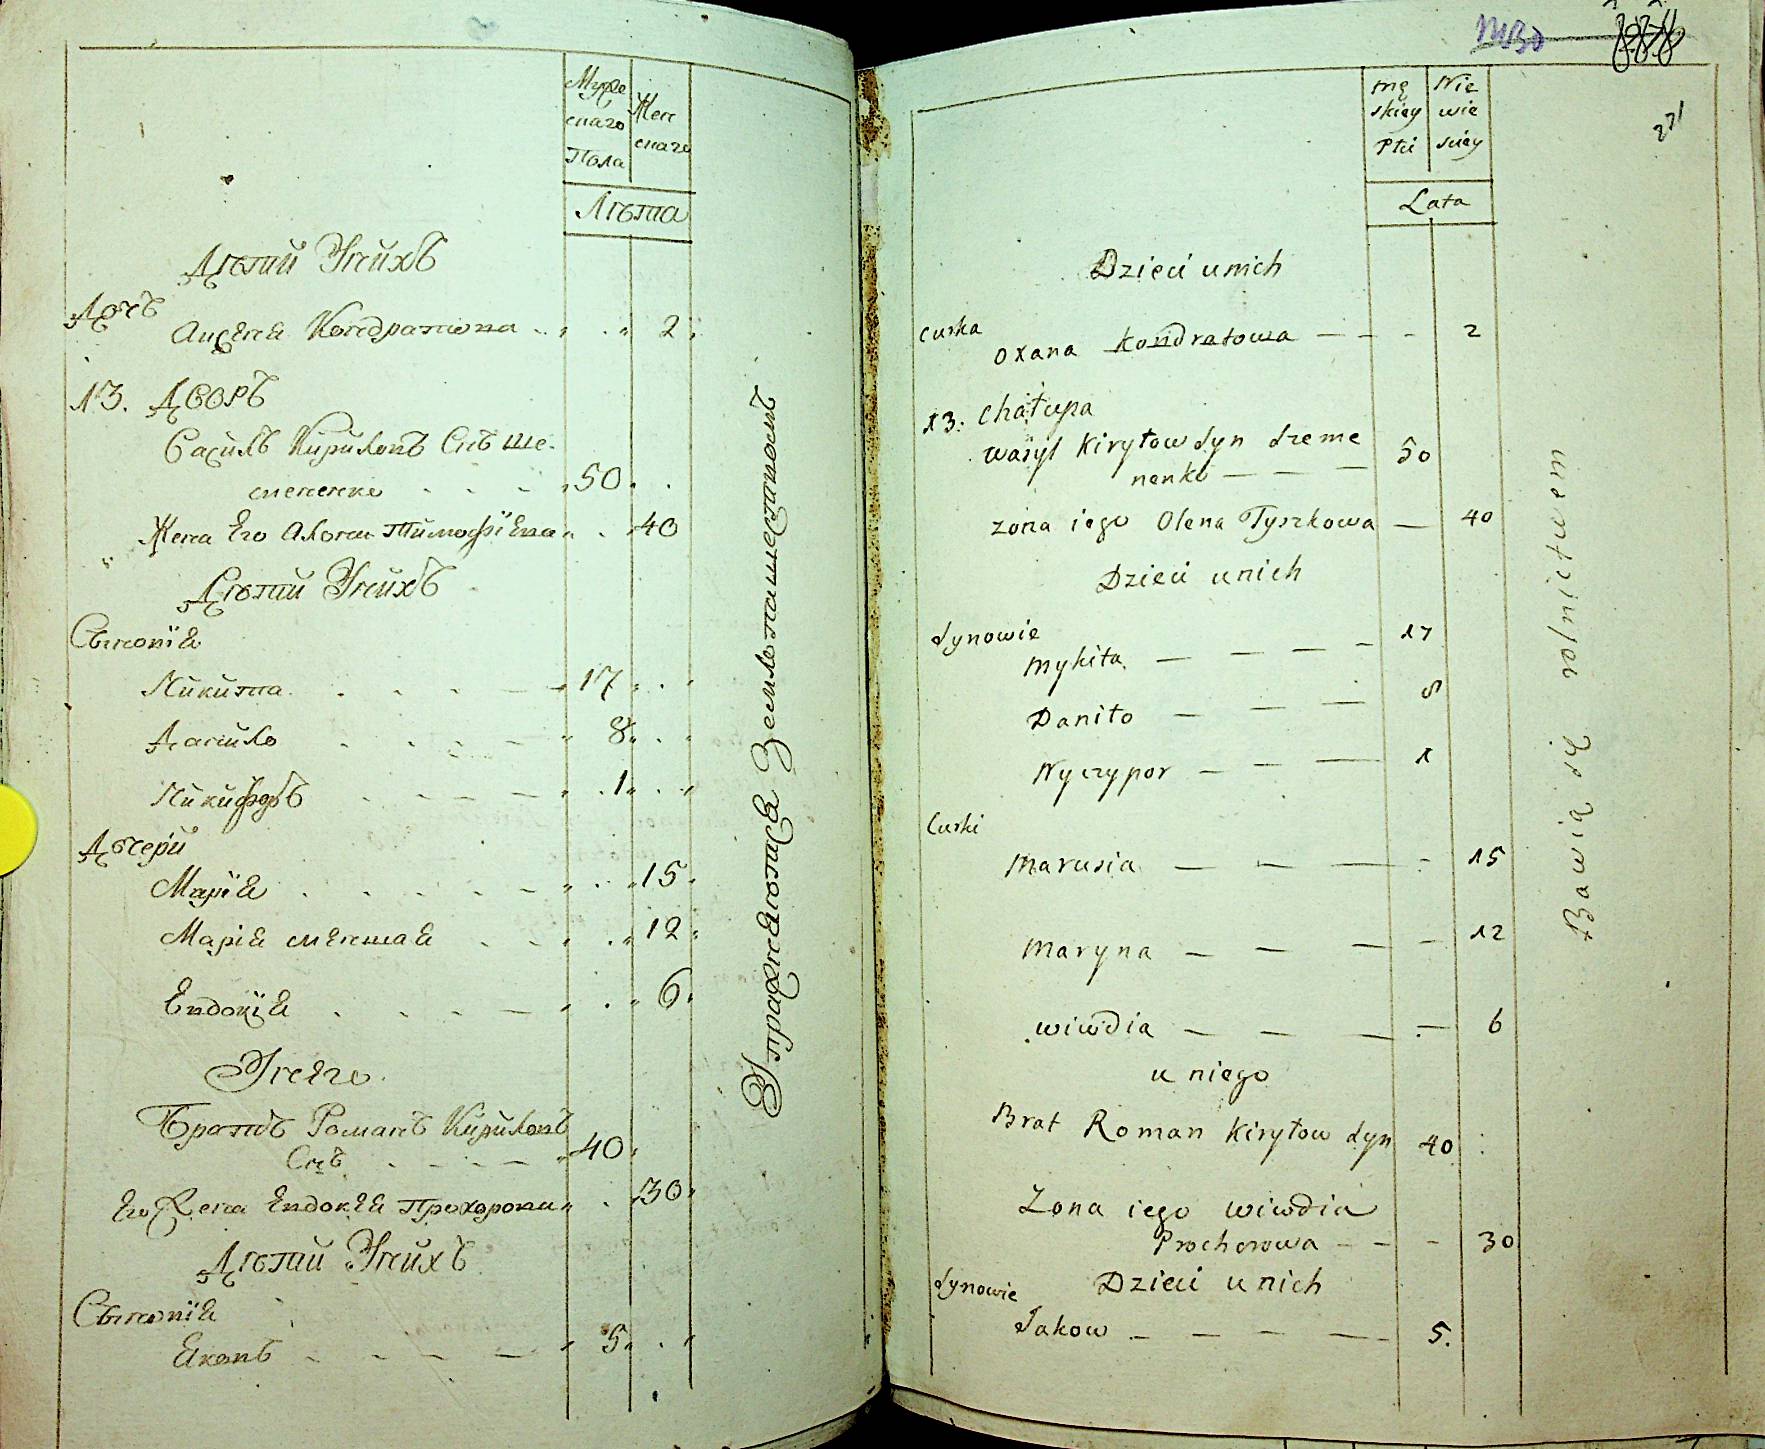 Муже
скаго
Пола
Жен
скаго
Лѣта
Дѣтїй Унихъ
Дочъ
Аксенѧ Кондратова 2
13. Дворъ
Василь Кириловъ Снъ Ше-
мененко 50
Жена Его Алена Тимофіева 40
Дѣтїй Унихъ
Сыновїѧ
Никита 17
Данило 8
Никифоръ 1
Дочери
Марїѧ 15
Марїѧ меншаѧ 12
Евдокїѧ 6
Унего
Братъ Романъ Кириловъ
Снъ 40
Его Жена Евдокѣѧ Прохорова 30
Дѣтїй Унихъ
Сыновїѧ
Яковъ 5
Упражнѧютсѧ Землепашествомъ
mę
skiey
Płci
Nie
wie
sciey
Lata
271
Dzieci unich
curka
oxana Kondratowa — - - 2
13. chałupa
wasyl Kiryłow Syn Szeme
nenko — — — 50
zona iego Olena Tyszkowa — 40
Dzieci unich
Synowie
mykita. — — — - 17
Daniło — — — 8
Nyczypor — - — 1
Curki
Marusia — — — - 15
Maryna — — — - 12
wiwdia — — — — 6
u niego
Brat Roman Kiryłow Syn 40
Zona iego wiwdia
Prochorowa - - - 30
Synowie Dzieci unich
Jakow — — — — 5.
Bawią się rolnictwem